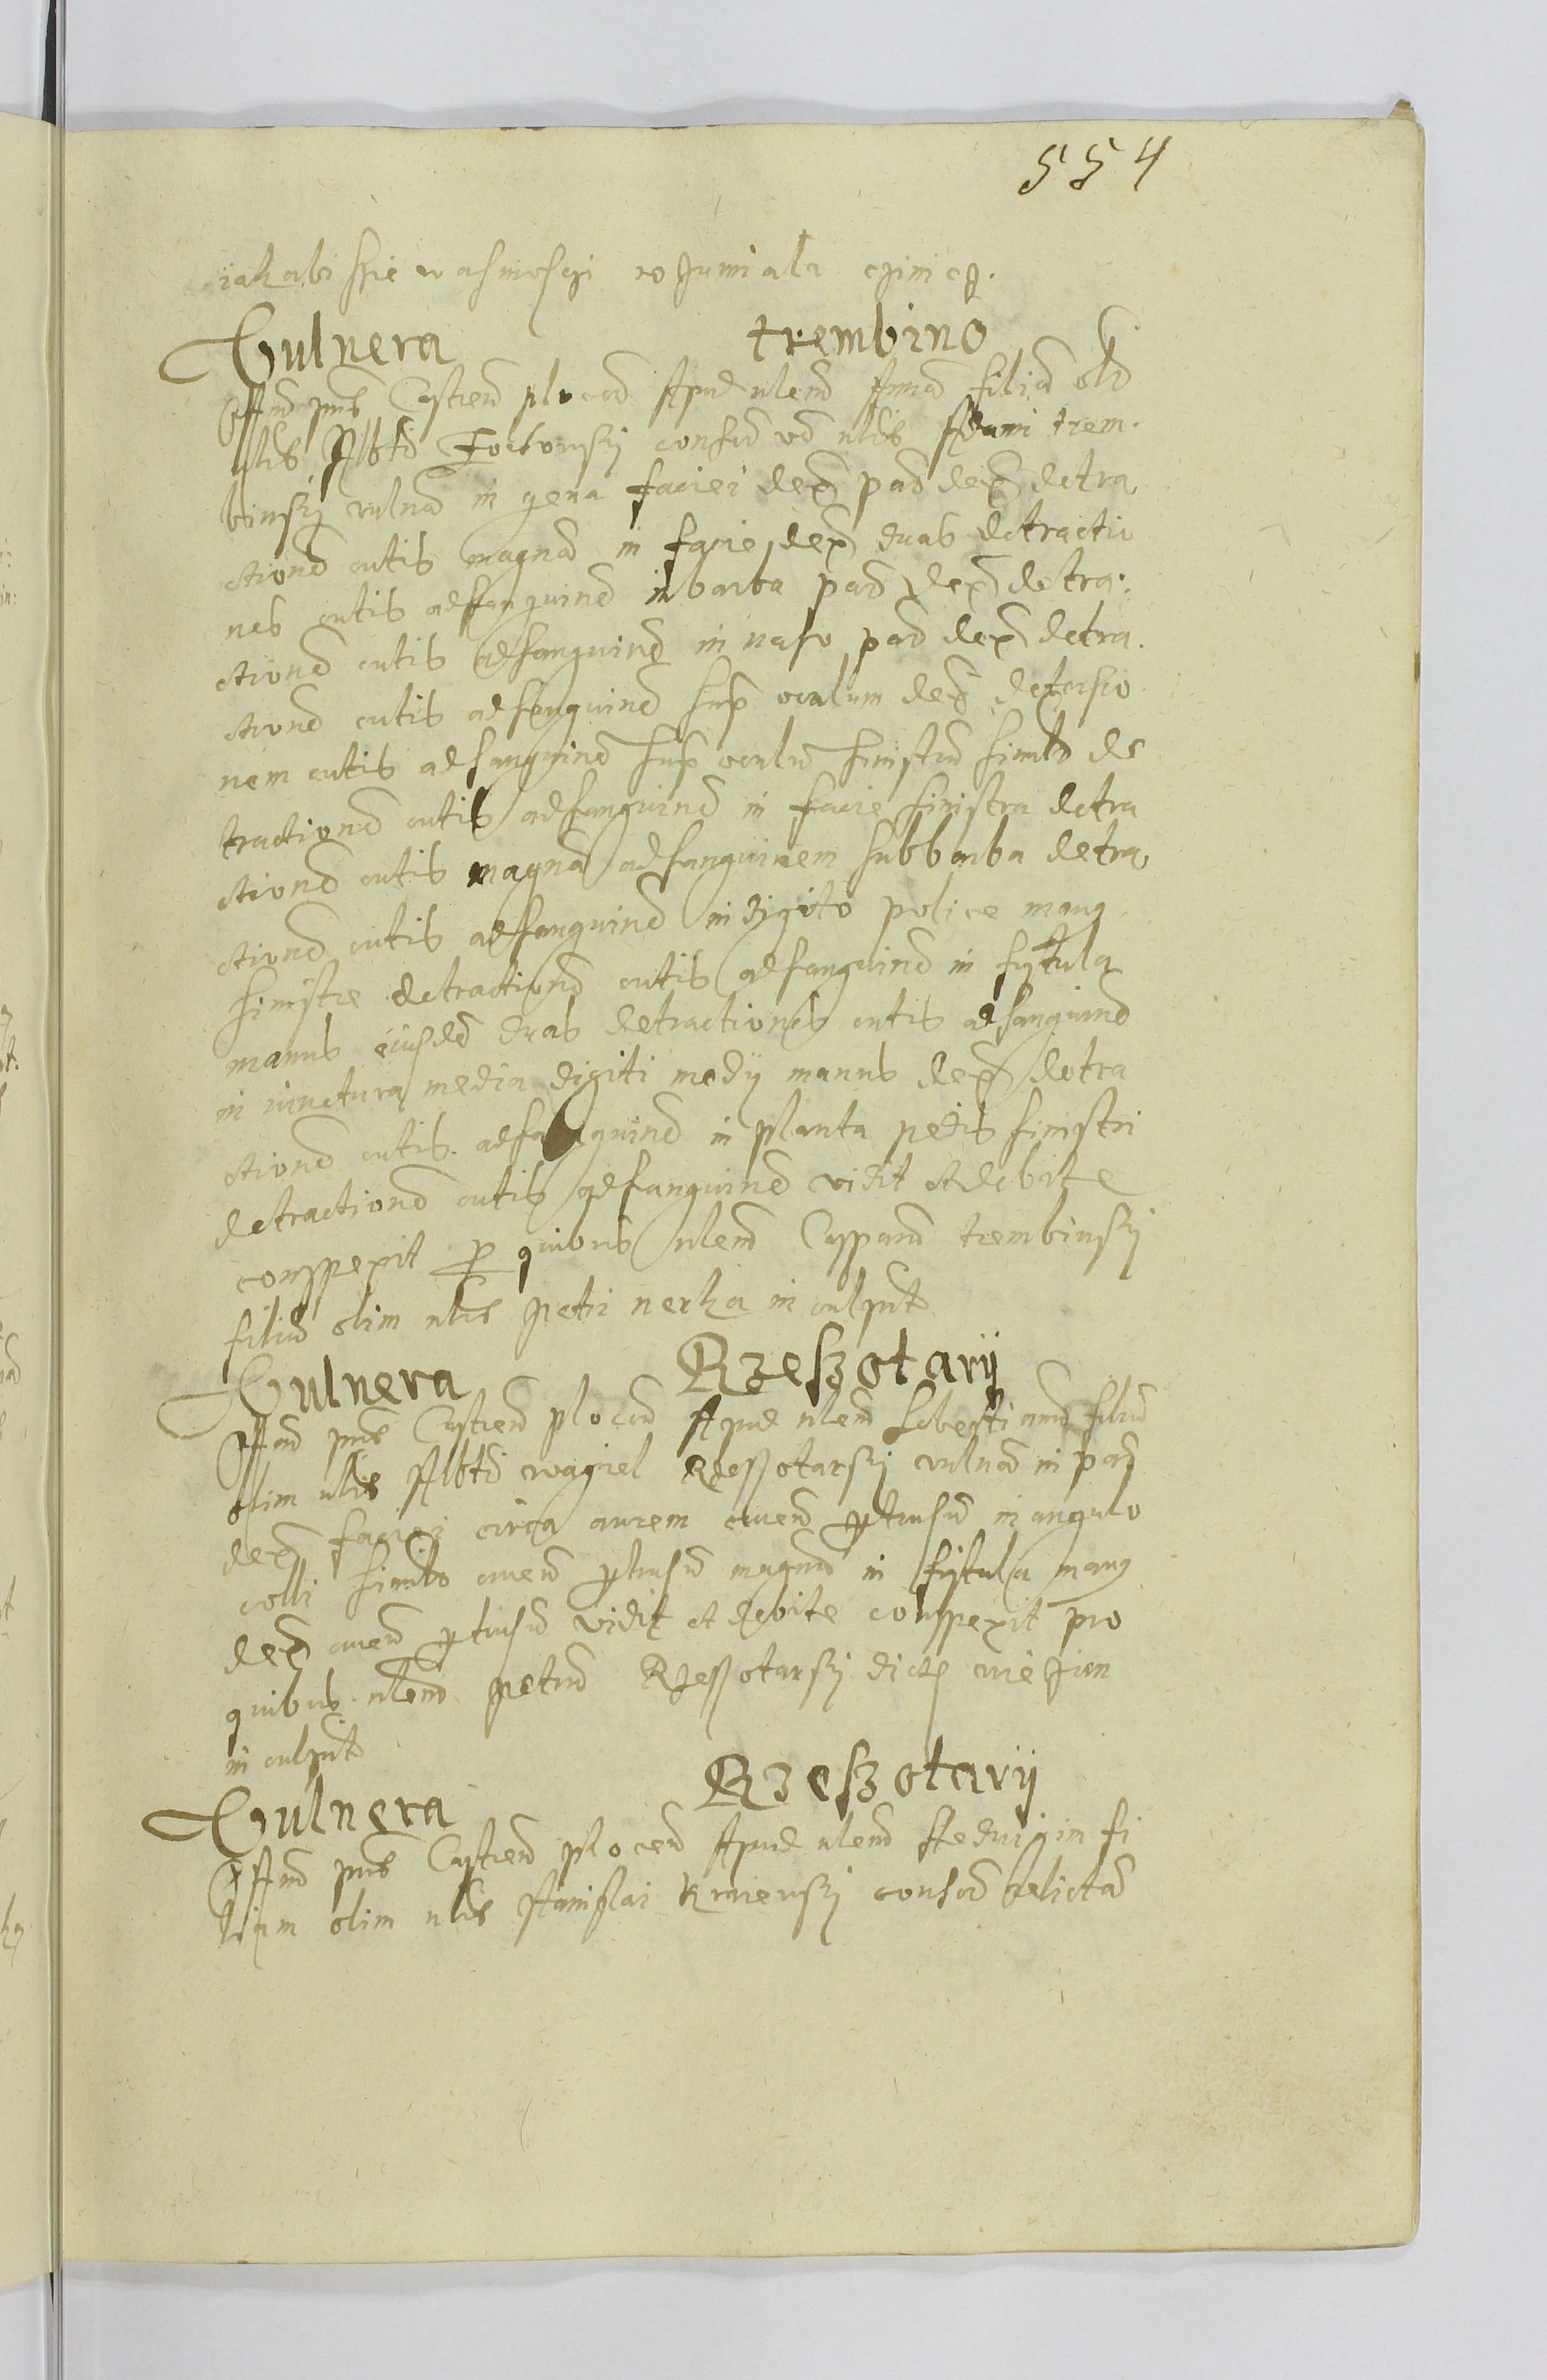 554
iakabi sie wasmosci rozumiala czinicz.
Vulnera trembino
Offm pns Castren plocen Apud nlem Annam filiam old
nlis Albti consm vd nlis Adami trem.
binsky vulnus in gena faciei dex pad dex detra
ctione cutis magna in facie dex duas detractio
nes cutis adsanguine in barba pad dex detra:
ctione cutis adsanguine in naso pad dex detra.
ctione cutis adsanguine sup oculum dex detersio
nem cutis adsanguine sup oculu sinistru simlr de
tractione cutis adsanguine in facie sinistra detra
ctione cutis magna adsanguinem subbarba detra
ctione cutis adsanguine in digito police mang
sinistre detractione cutis adsanguine in fystula
manus eiusde duas detractiones cutis adsanguine
in iunctura media digiti medy manus dex detra
ctione cutis adsanguine in planta pedis sinistri
detractione cutis adsanguine vidit et debite
conspexit p quibus nlem Casparu trembinsky
filiu olim nlis Petri nerka inculpat
Vulnera Rzeszotarÿ
Offm pns Castren plocen Apud nlem Sebastianu filiu
olim nlis Albti wagiel Rzeszotarsky vulnus in pad
dex faciei circa aurem cruen ptusu in angulo
colli simlr cruen ptusu magnu in fystula mang
dex cruen ptusu vidit et debite conspexit pro
quibus nlem petru Rzeszotarsky dict
inculpat
Vulnera Rzeszotarÿ
Offm pns Castren plocen Apud nlem Hedvigim fi
liam olim nlis Stanislai consor relictam